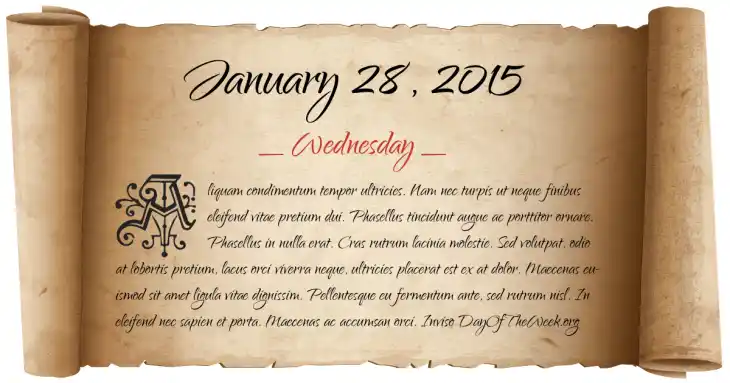 January 28, 2015
Wednesday
Aliquam condimentum tempor ultricies. Nam nec turpis ut neque finibus
eleifend vitae pretium dui. Phasellus tincidunt augue ac porttitor ornare.
Phasellus in nulla erat. Cras rutrum lacinia molestie. Sed volutpat, odio
at lobortis pretium, lacus orci viverra neque, ultricies placerat est ex at dolor. Maecenas eu-
ismod sit amet ligula vitae dignissim. Pellentesque eu fermentum ante, sed rutrum nisl. In
eleifend nec sapien et porta. Maecenas ac accumsan orci. Inviso DayOfTheWeek.org